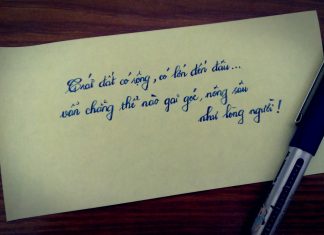 Trái đất có rộng, có lớn đến đâu...
vẫn chẳng thể nào gai góc, nông sâu
như lòng người!